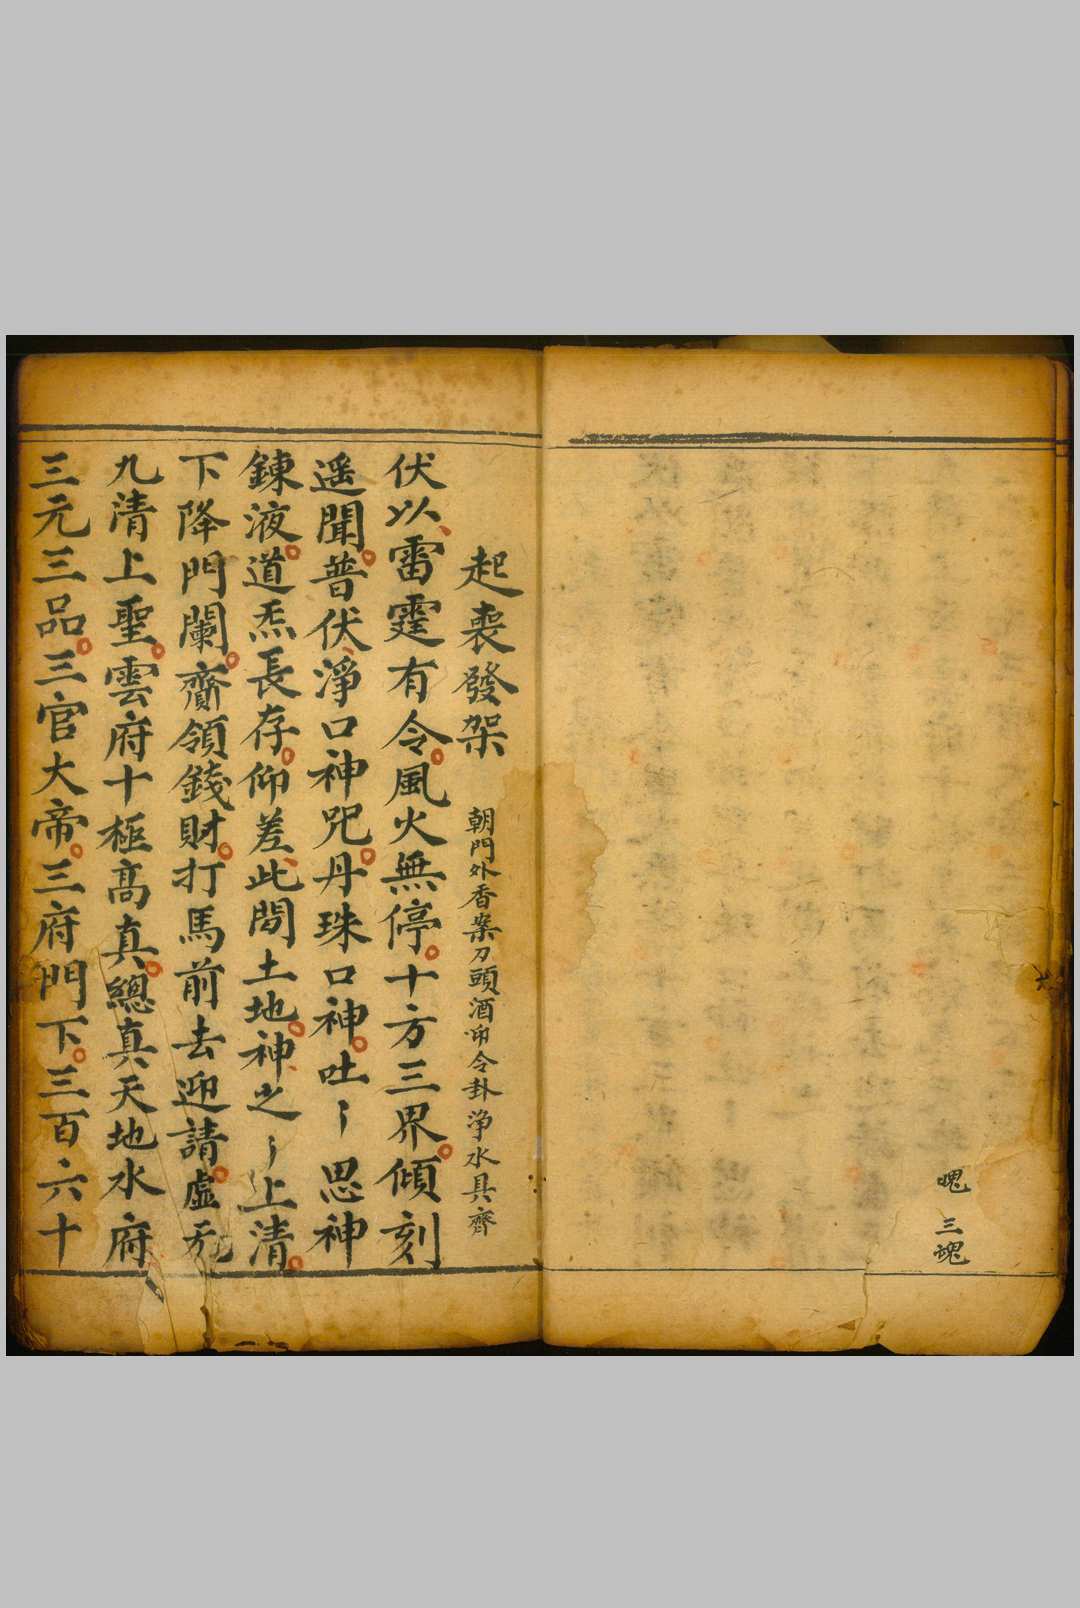 魂 三魂
起喪發架 朝門外香案刀頭酒 令卦淨水具齊
伏以雷霆有令風火無停十方三界傾刻
遥聞普伏淨口神咒丹珠口神吐〻思神
鍊液道炁長存仰差此間土地神之〻上清
下降門闌齎領錢財打馬前去迎請虛无
九清上聖雲府十極高真總真天地水府
三元三品三官大帝三府門下三百六十